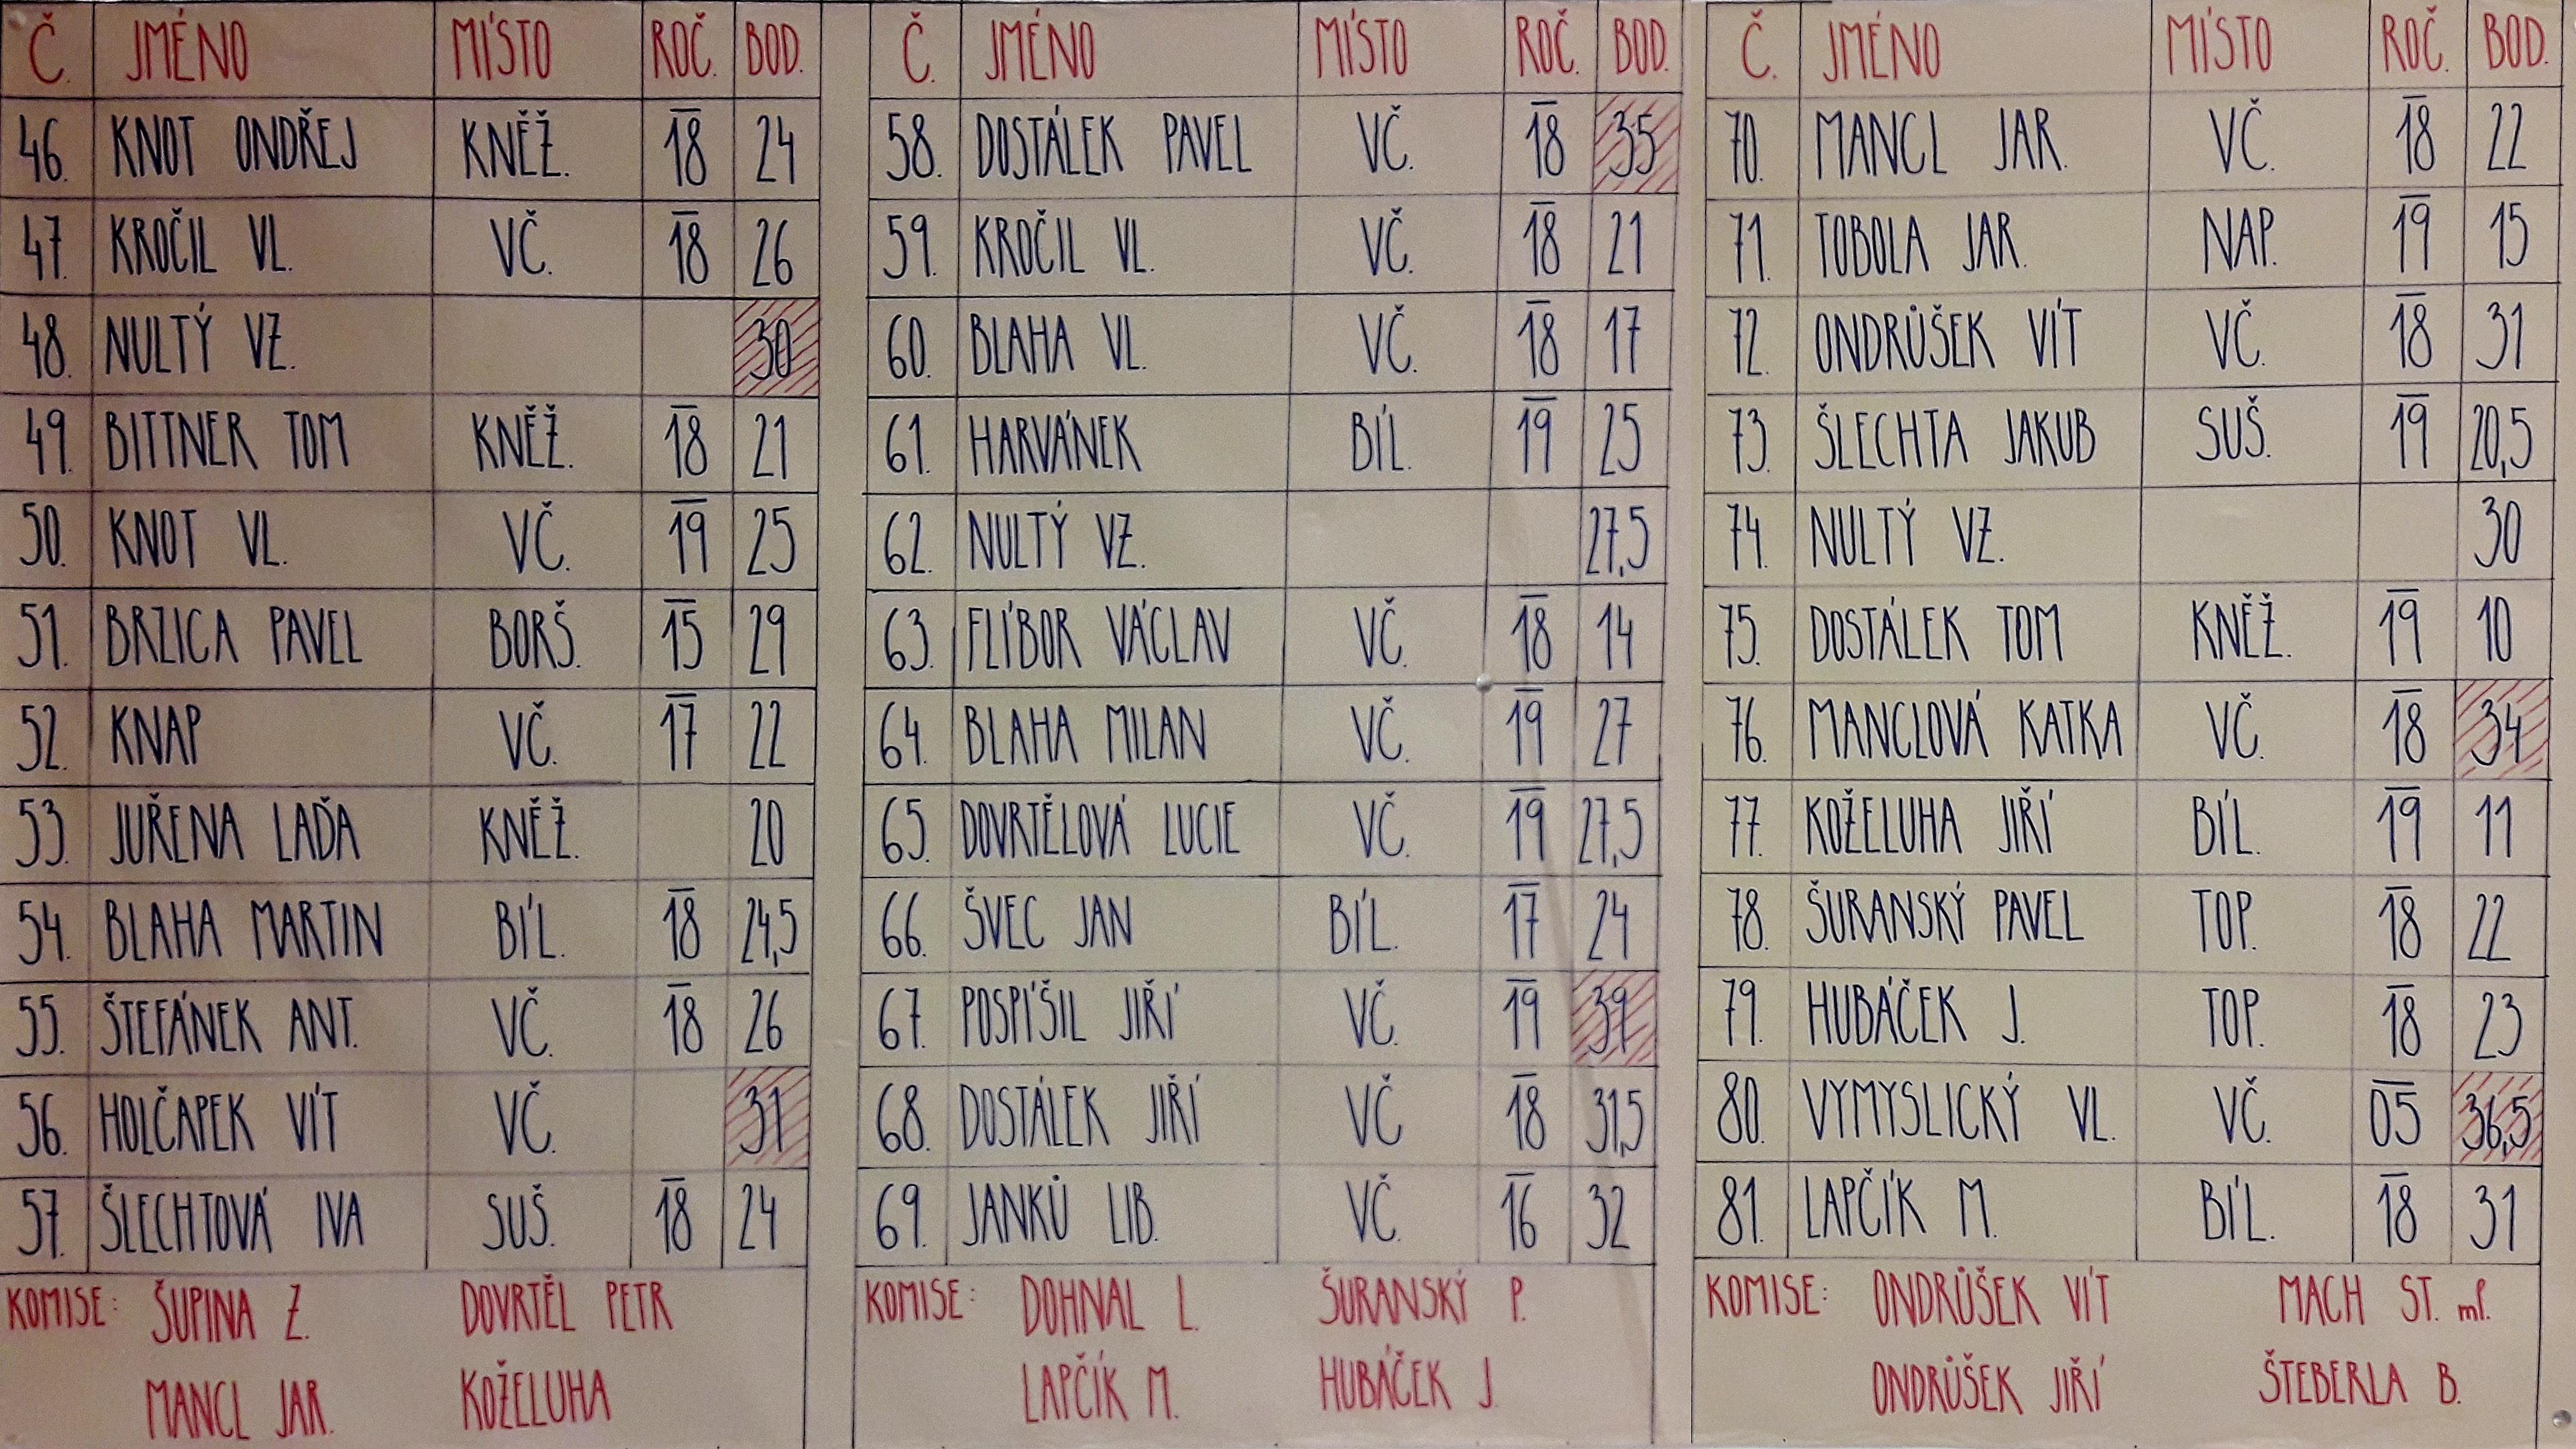 Č. JMÉNO MÍSTO ROČ. BOD.
46. KNOT ONDŘEJ KNĚŽ. 18 24
47. KROČIL VL. VČ. 18 26
48. NULTÝ VZ. 30
49. BITTNER TOM KNĚŽ. 18 21
50. KNOT VL. VČ. 19 25
51. BRZICA PAVEL BORŠ. 15 29
52. KNAP VČ. 17 22
53. JUŘENA LAĎA KNĚŽ. 20
54. BLAHA MARTIN BÍL. 18 24,5
55. ŠTEFÁNEK ANT. VČ. 18 26
56. HOLČAPEK VÍT VČ. 31
57. ŠLECHTOVÁ IVA SUŠ. 18 24
KOMISE: ŠUPINA Z. DOVRTĚL PETR
MANCL JAR. KOŽELUHA
Č. JMÉNO MÍSTO ROČ. BOD.
58. DOSTÁLEK PAVEL VČ. 18 35
59. KROČIL VL. VČ. 18 21
60. BLAHA VL. VČ. 18 17
61. HARVÁNEK BÍL. 19 25
62. NULTÝ VZ. 27,5
63. FLÍBOR VÁCLAV VČ. 18 14
64. BLAHA MILAN VČ. 19 27
65. DOVRTĚLOVÁ LUCIE VČ. 19 27,5
66. ŠVEC JAN BÍL. 17 24
67. POSPÍŠIL JIŘÍ VČ. 19 39
68. DOSTÁLEK JIŘÍ VČ 18 31,5
69. JANKŮ LIB. VČ. 16 32
KOMISE: DOHNAL L. ŠURANSKÝ P.
LAPČÍK M. HUBÁČEK J.
Č. JMÉNO MÍSTO ROČ. BOD.
70. MANCL JAR. VČ. 18 22
71. TOBOLA JAR. NAP. 19 15
72. ONDRŮŠEK VÍT VČ. 18 31
73. ŠLECHTA JAKUB SUŠ. 19 20,5
74. NULTÝ VZ. 30
75. DOSTÁLEK TOM KNĚŽ. 19 10
76. MANCLOVÁ KATKA VČ. 18 34
77. KOŽELUHA JIŘÍ BÍL. 19 11
78. ŠURANSKÝ PAVEL TOP. 18 22
79. HUBÁČEK J. TOP. 18 23
80. VYMYSLICKÝ VL. VČ. 05 36,5
81. LAPČÍK M. BÍL. 18 31
KOMISE: ONDRŮŠEK VÍT MACH ST. ml.
ONDRŮŠEK JIŘÍ ŠTEBERLA B.